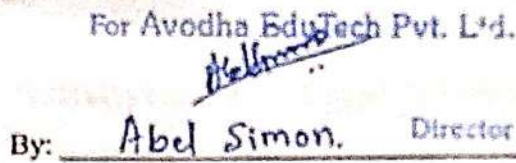 For Avodha EduTech Pvt. Ltd.
By: Abel Simon. Director